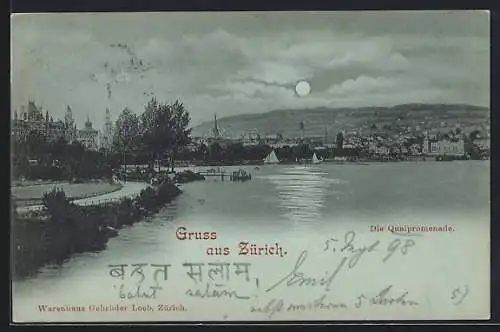 Gruss
aus Zürich.
Die Quaipromenade.
5. Sept. 98
बहत सलाम
baht salam
Emil
Warenhaus Gebrüder Loeb, Zürich.